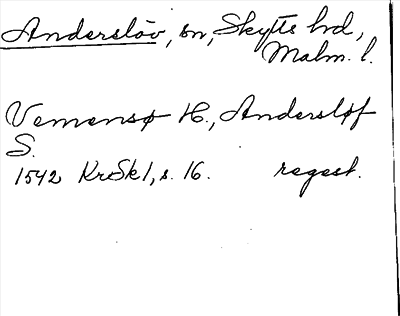 Anderslöv, sn, Skytts hd,
Malm. l.
Vemensø H., Andersløf
S.
1542 KrSk 1, s. 16. regest.